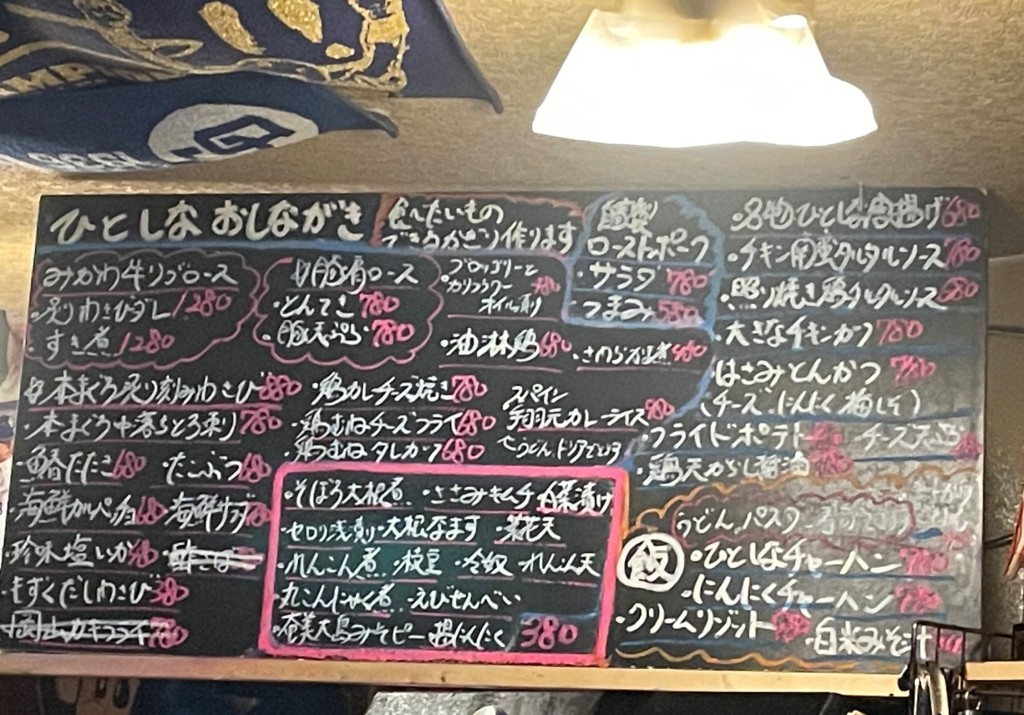 ひとしな おしながき
食べたいもの
できるかぎり作ります
みかわ牛リブロース
・炙りわさびダレ 1280
・すき煮 1280
豚肩ロース
・とんてき 780
・豚天ぷら 780
ブロッコリーと
カリフラワー
オイル煮り
・油淋鶏 680
自家製
ローストポーク
・サラダ 780
・つまみ 580
・名物ひとしな唐揚げ 680
・チキン南蛮タルタルソース 780
・照り焼き鶏タルタルソース
・大きなチキンカツ 780
・はさみとんかつ
(チーズ にんにく 梅しそ)
・フライドポテト
チーズ天ぷら
・鶏天からし醤油
本まぐろ炙り刻みわさび 880
・本まぐろ中落ちとろ 780
・たたき 680 ・たこぶつ
・海鮮カルパッチョ ・海鮮
・珍味塩いか
・もずくだしわさび 380
・鶏カレチーズ焼き 780
・鶏むねチーズフライ 680
・鶏むねタレカツ 680
スペイン
カレーライス
・そぼろ大根煮 ・ささみキムチ 白菜漬け
・セロリ浅漬け ・大根なます
・れんこん煮 ・枝豆 ・冷奴 ・れんこん天
・丸こんにゃく煮 ・えびせんべい
・奄美大島みそピー 揚にんにく 380
うどん パスタ
飯
・ひとしなチャーハン
・にんにくチャーハン
・クリームリゾット
・白米みそ汁